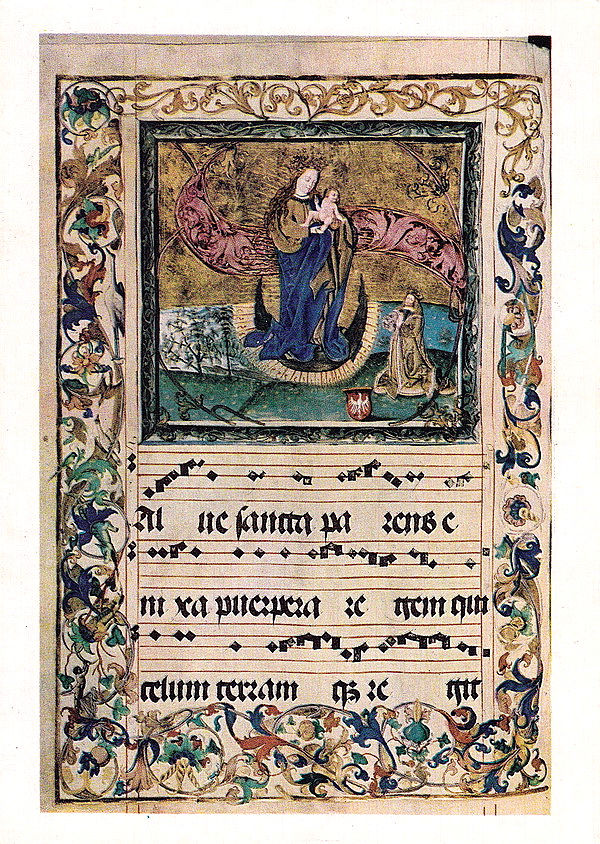 Al ue sancta pa rens e
ni xa puerpera re gem qui
celum terram qꝫ re git